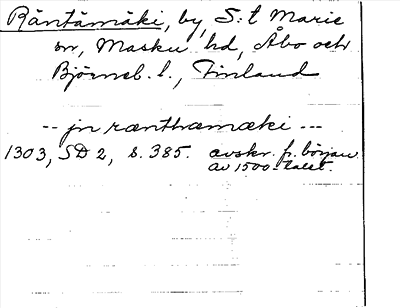 Räntämäki, by, S:t Marie
sn, Masku hd, Åbo och
Björneb. l., Finland
-- jn ränthæmæki ---
1303, SD 2, s. 385. avskr. fr. början
av 1500-talet.